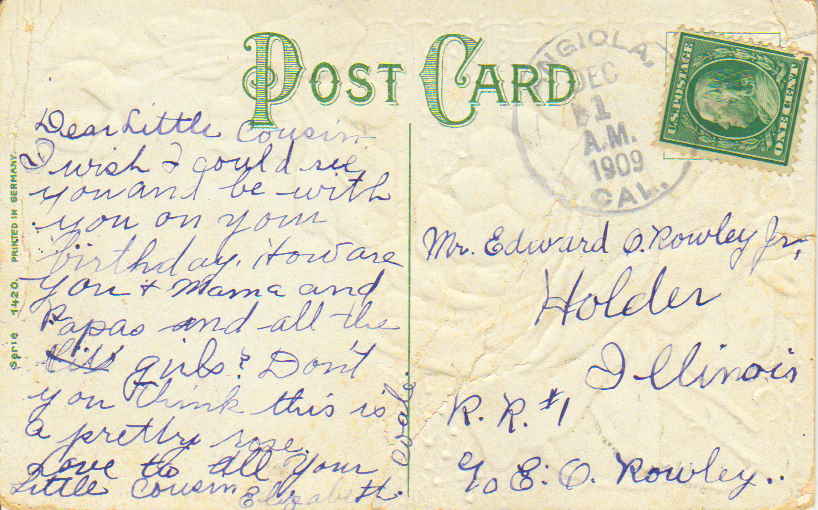 POST CARD
ANGIOLA,
DEC
1
A.M.
1909
CAL.
U.S. POSTAGE
ONE CENT
Dear Little Cousin
I wish I could see
you and be with
you on your
birthday. How are
You + Mama and
Papas and all the
girls? Don't
you think this is
a pretty rose.
Love to all Your
Little Cousin Elizabeth.
Mr. Edward O. Rowley Jr,
Holder
Illinois
R. R. #1
c/o E. O. Rowley..
Serie 1420. PRINTED IN GERMANY.